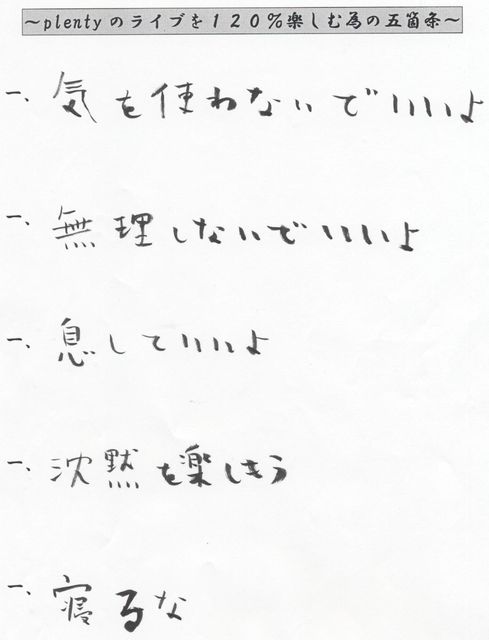 ～plentyのライブを１２０％楽しむ為の五箇条～
一、気を使わないでいいよ
一、無理しないでいいよ
一、息していいよ
一、沈黙を楽しもう
一、寝るな